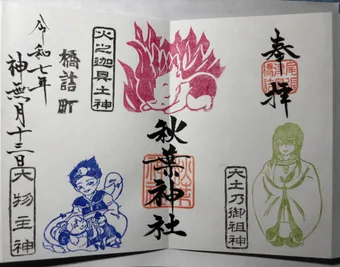 奉拝
火之迦具土神
秋葉神社
大土乃御祖神
橋詰町
令和七年
神無月十三日
大物主神